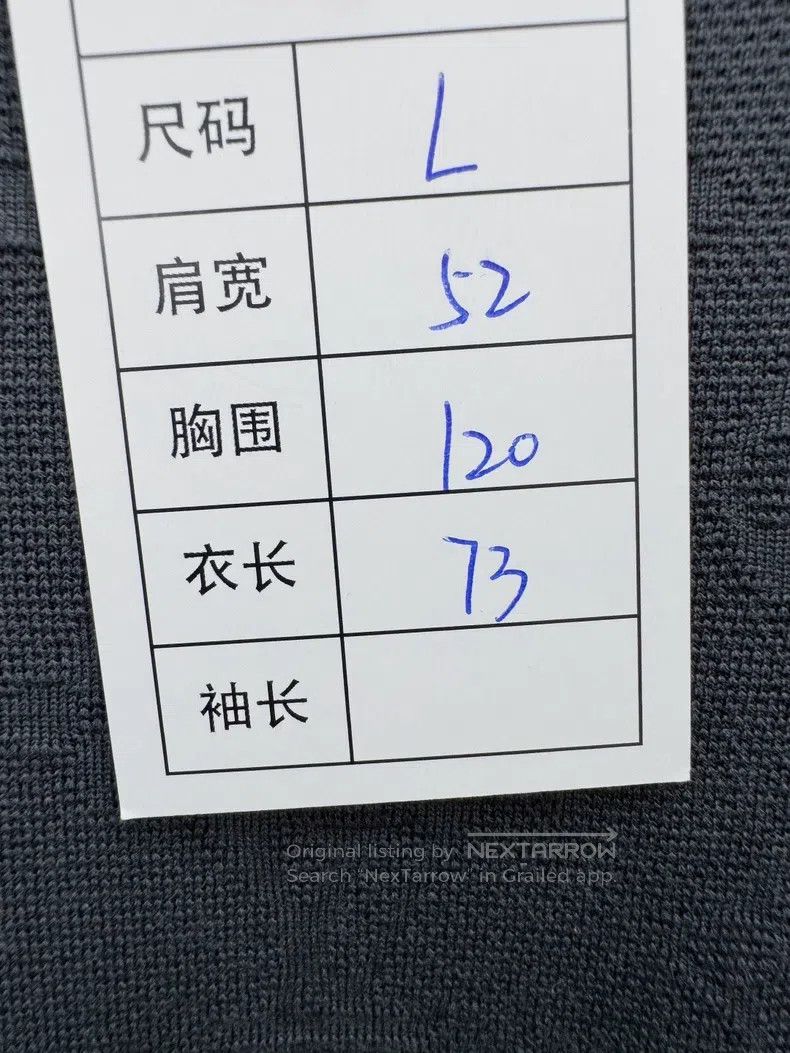 尺码 L
肩宽 52
胸围 120
衣长 73
袖长
Original listing by NEXTARROW
Search "NexTarrow" in Grailed app.